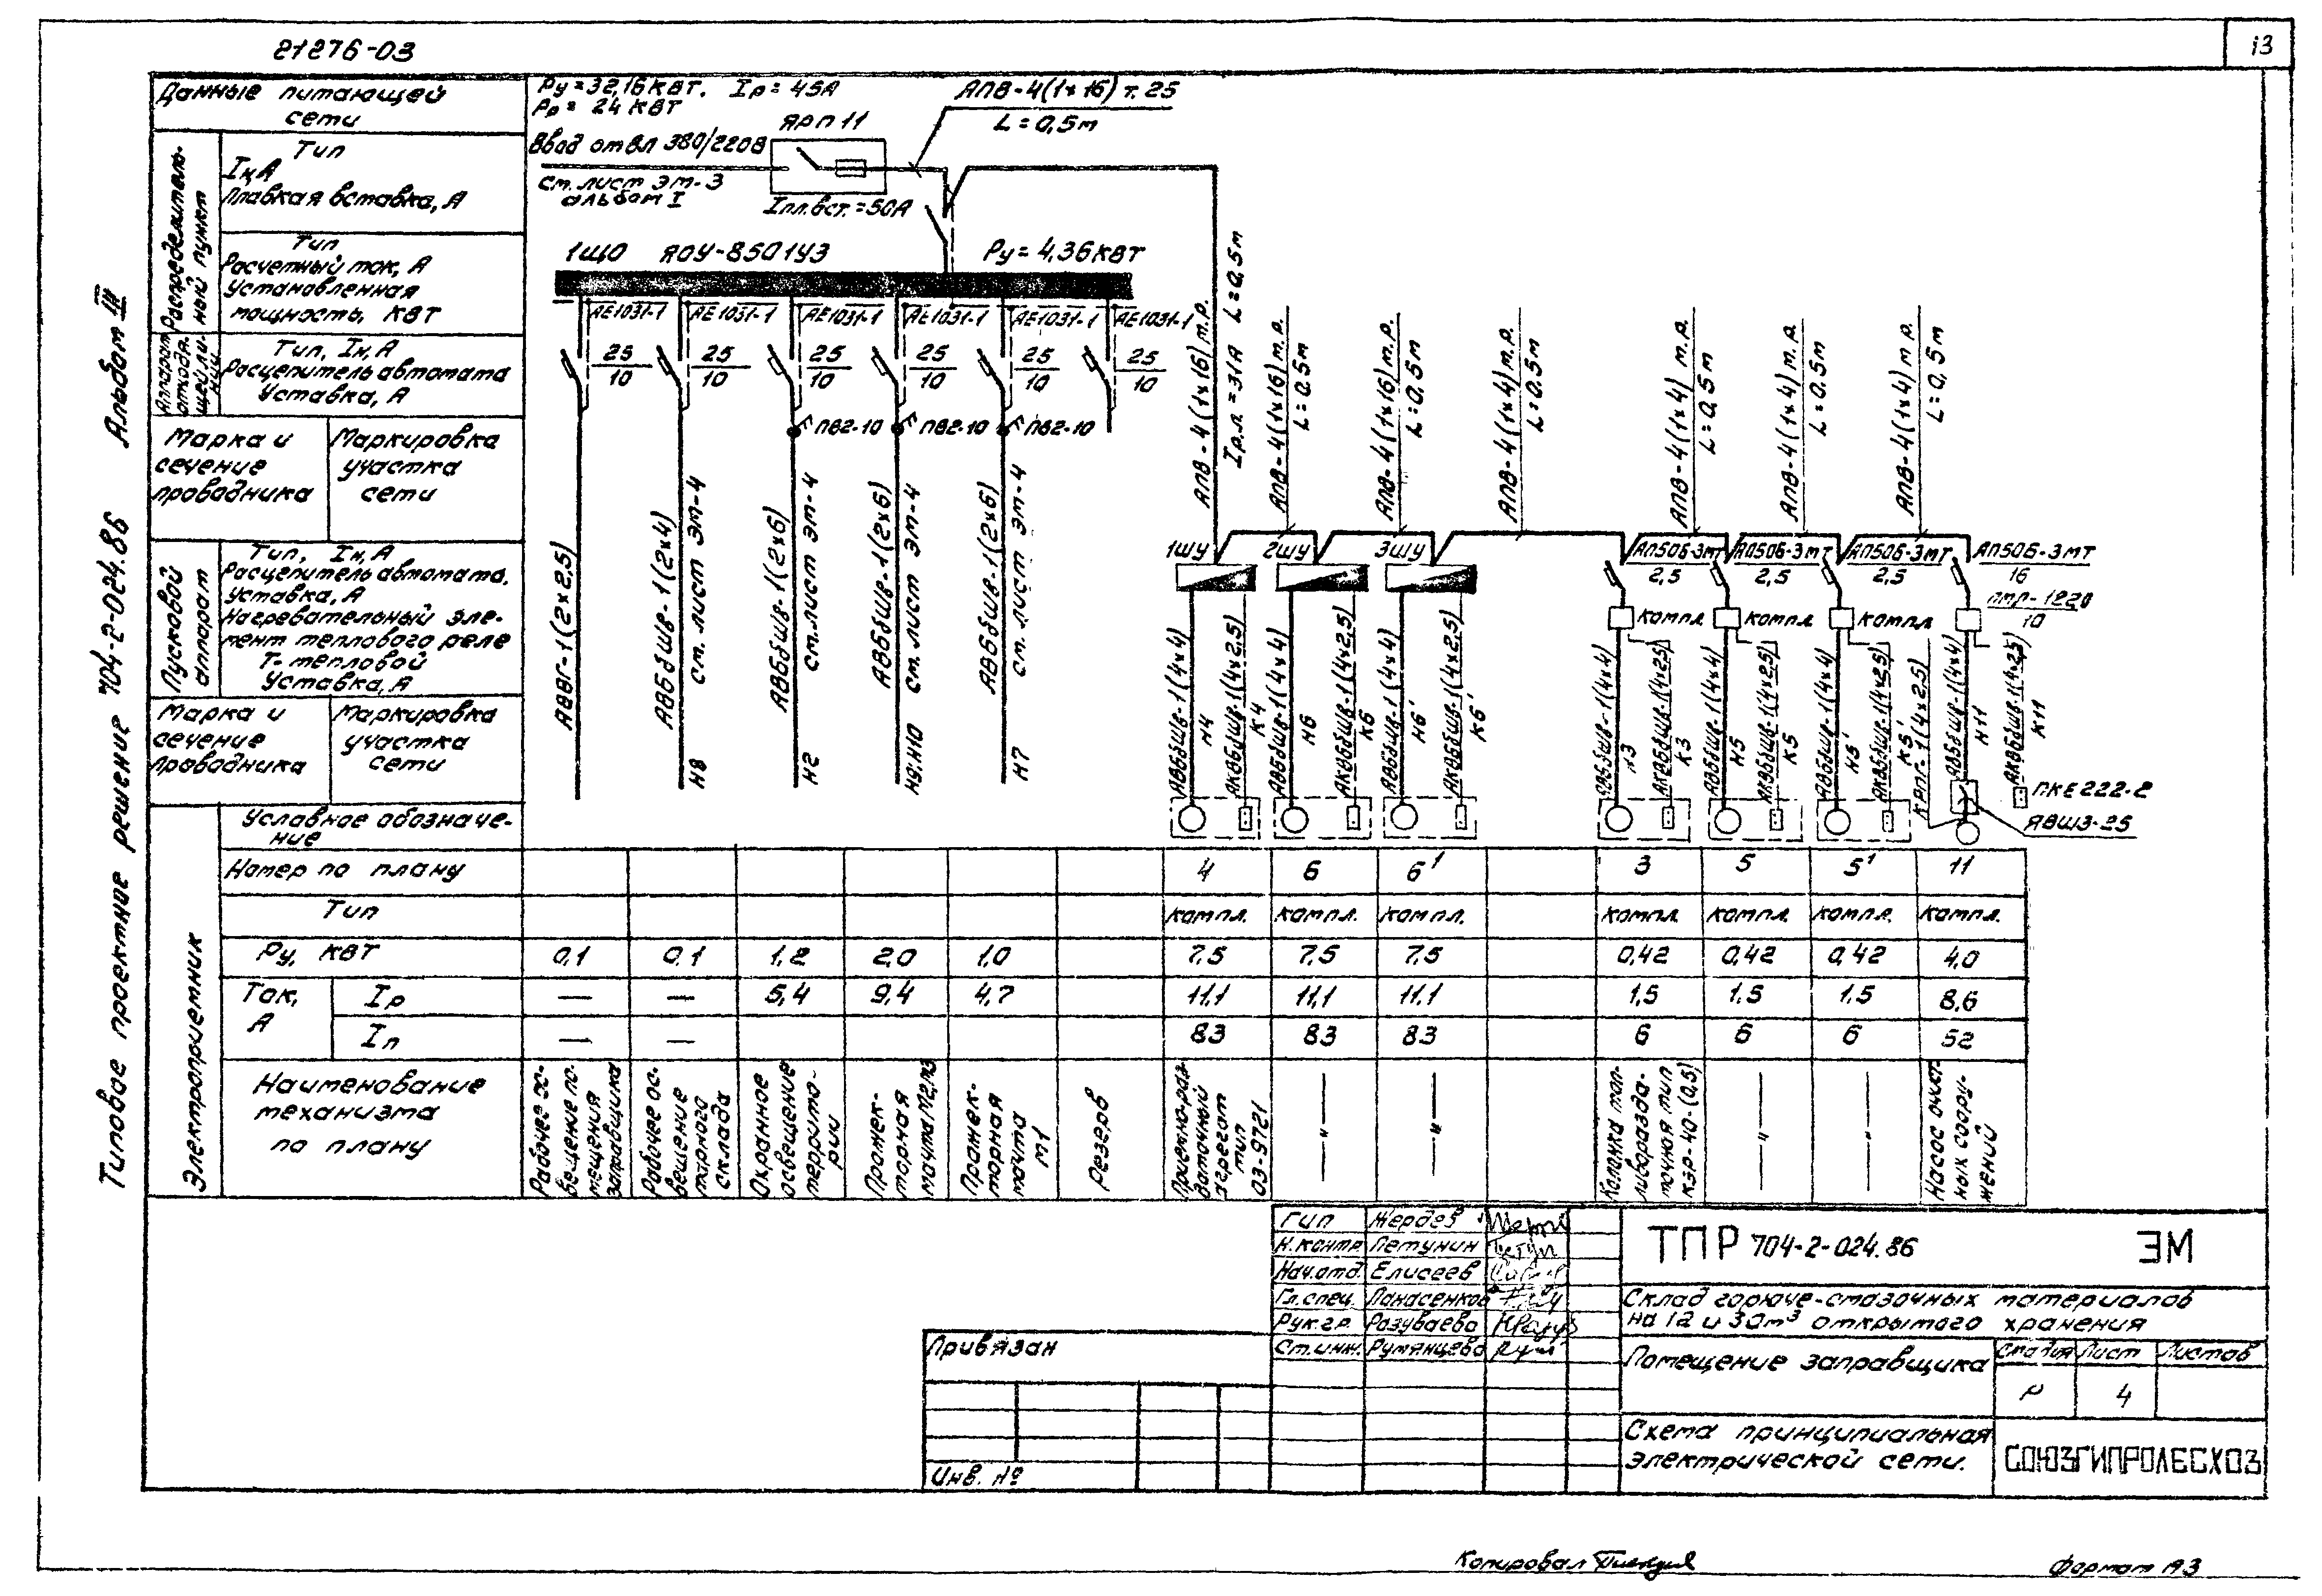 21276-03
13
Типовое проектное решение 704-2-024.86 Альбом III
Данные питающей
сети
Распределитель-
ный пункт
Тип
Iн,А
Плавкая вставка, А
Тип
Расчетный ток, А
Установленная
мощность, кВт
Аппарат
отходя-
щей ли-
нии
Тип, Iн, А
Расцепитель автомата
Уставка, А
Марка и
сечение
проводника
Маркировка
участка
сети
Пусковой
аппарат
Тип, Iн, А
Расцепитель автомата,
Уставка, А
Нагревательный эле-
мент теплового реле
Т-тепловой
Уставка, А
Марка и
сечение
проводника
Маркировка
участка
сети
Ру=32,16 кВт. Iр=45А
Рр= 24 кВт
Ввод от ВЛ 380/220В
см. лист ЭМ-3
альбом I
ЯРП 11
Iпл.вст.=50А
АПВ-4(1×16) т. 25
L=0,5м
1ЩО ЯОУ-8501У3 Ру=4,36 кВт
АЕ1031-1 АЕ1031-1 АЕ1031-1 АЕ1031-1 АЕ1031-1 АЕ1031-1
25 25 25 25 25 25
10 10 10 10 10 10
ПВ2-10 ПВ2-10 ПВ2-10
АВВГ-1(2×2,5)
АВБбШв-1(2×4)
Н8 см. лист ЭМ-4
АВБбШв-1(2×6)
Н2 см. лист ЭМ-4
АВБбШв-1(2×6)
Н9;Н10 см. лист ЭМ-4
АВБбШв-1(2×6)
Н7 см. лист ЭМ-4
АПВ-4(1×16) т.р.
Iр.л.=31А L=0,5м
АПВ-4(1×16) т.р.
L=0,5м
АПВ-4(1×16) т.р.
L=0,5м
АПВ-4(1×4) т.р.
L=0,5м
АПВ-4(1×4) т.р.
L=0,5м
АПВ-4(1×4) т.р.
L=0,5м
АПВ-4(1×4) т.р.
L=0,5м
1ШУ 2ШУ 3ШУ
АП50Б-3МТ АП50Б-3МТ АП50Б-3МТ АП50Б-3МТ
2,5 2,5 2,5 16
компл компл. компл ПМР-1220
10
АВБбШв-1(4×4)
Н4
АКВБбШв-1(4×2,5)
К4
АВБбШв-1(4×4)
Н6
АКВБбШв-1(4×2,5)
К6
АВБбШв-1(4×4)
Н6'
АКВБбШв-1(4×2,5)
К6'
АВБбШв-1(4×4)
Н3
АКВБбШв-1(4×2,5)
К3
АВБбШв-1(4×4)
Н5
АКВБбШв-1(4×2,5)
К5
АВБбШв-1(4×4)
Н5'
АКВБбШв-1(4×2,5)
К5'
КРПГ-1(4×2,5)
АВБбШв-1(4×4)
Н11
АКВБбШв-1(4×2,5)
К11
ПКЕ222-2
ЯВШ3-25
Электроприемник
Условное обозначе-
ние
Номер по плану 4 6 6' 3 5 5' 11
Тип компл. компл. компл. компл. компл. компл. компл.
Ру, кВт 0,1 0,1 1,2 2,0 1,0 7,5 7,5 7,5 0,42 0,42 0,42 4,0
Ток,
А
Iр — — 5,4 9,4 4,7 11,1 11,1 11,1 1,5 1,5 1,5 8,6
Iп — — 83 83 83 6 6 6 52
Наименование
механизма
по плану
Рабочее ос-
вещение по-
мещения
заправщика
Рабочее ос-
вещение
тарного
склада
Охранное
освещение
террито-
рии
Прожек-
торная
мачта М2,М3
Прожек-
торная
мачта
М1
Резерв
Приемно-раз-
даточный
агрегат
тип
03-9721
—"—
—"—
Колонка топ-
ливоразда-
точная тип
КЭР-40-(0,5)
—"—
—"—
Насос очист-
ных соору-
жений
ГИП Жердев
Н.контр Петунин
Нач.отд. Елисеев
Гл.спец. Панасенков
Рук.гр. Разуваева
Ст.инж. Румянцева
Привязан
Инв. №
ТПР 704-2-024.86 ЭМ
Склад горюче-смазочных материалов
на 12 и 30м³ открытого хранения
Помещение заправщика
Стадия Лист Листов
Р 4
Схема принципиальная
электрической сети.
СОЮЗГИПРОЛЕСХОЗ
Копировал
Формат А3